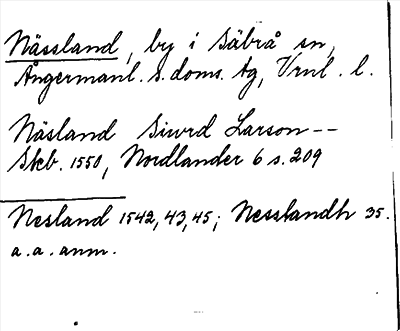 Nässland, by i Säbrå sn,
Ångermanl. s. doms. tg, Vrnl. l.
Näsland Siwrd Larson --
Skb. 1550, Nordlander 6 s. 209
Nesland 1542, 43, 45; Nesslandh 35.
a. a. anm.